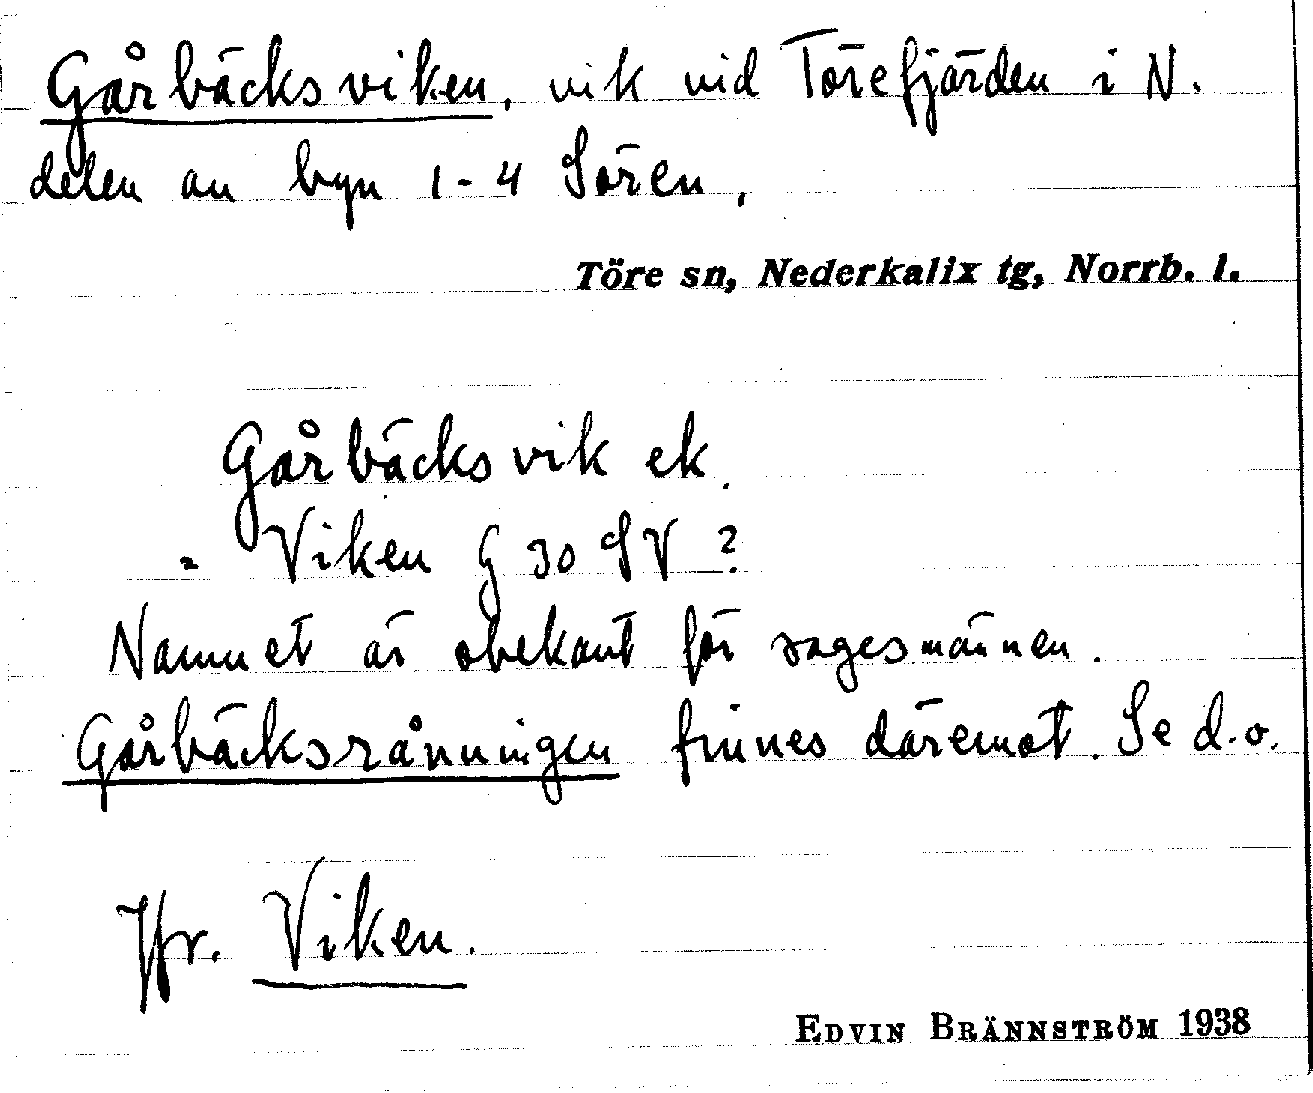 Gårbäcksviken, vik vid Törefjärden i N.
delen av byn 1-4 Sören,
Töre sn, Nederkalix tg, Norrb. l.
Gårbäcksvik ek.
= Viken G 30 SV ?
Namnet är obekant för sagesmännen.
Gårbäcksrånningen finnes däremot. Se d.o.
Jfr. Viken.
EDVIN BRÄNNSTRÖM 1938